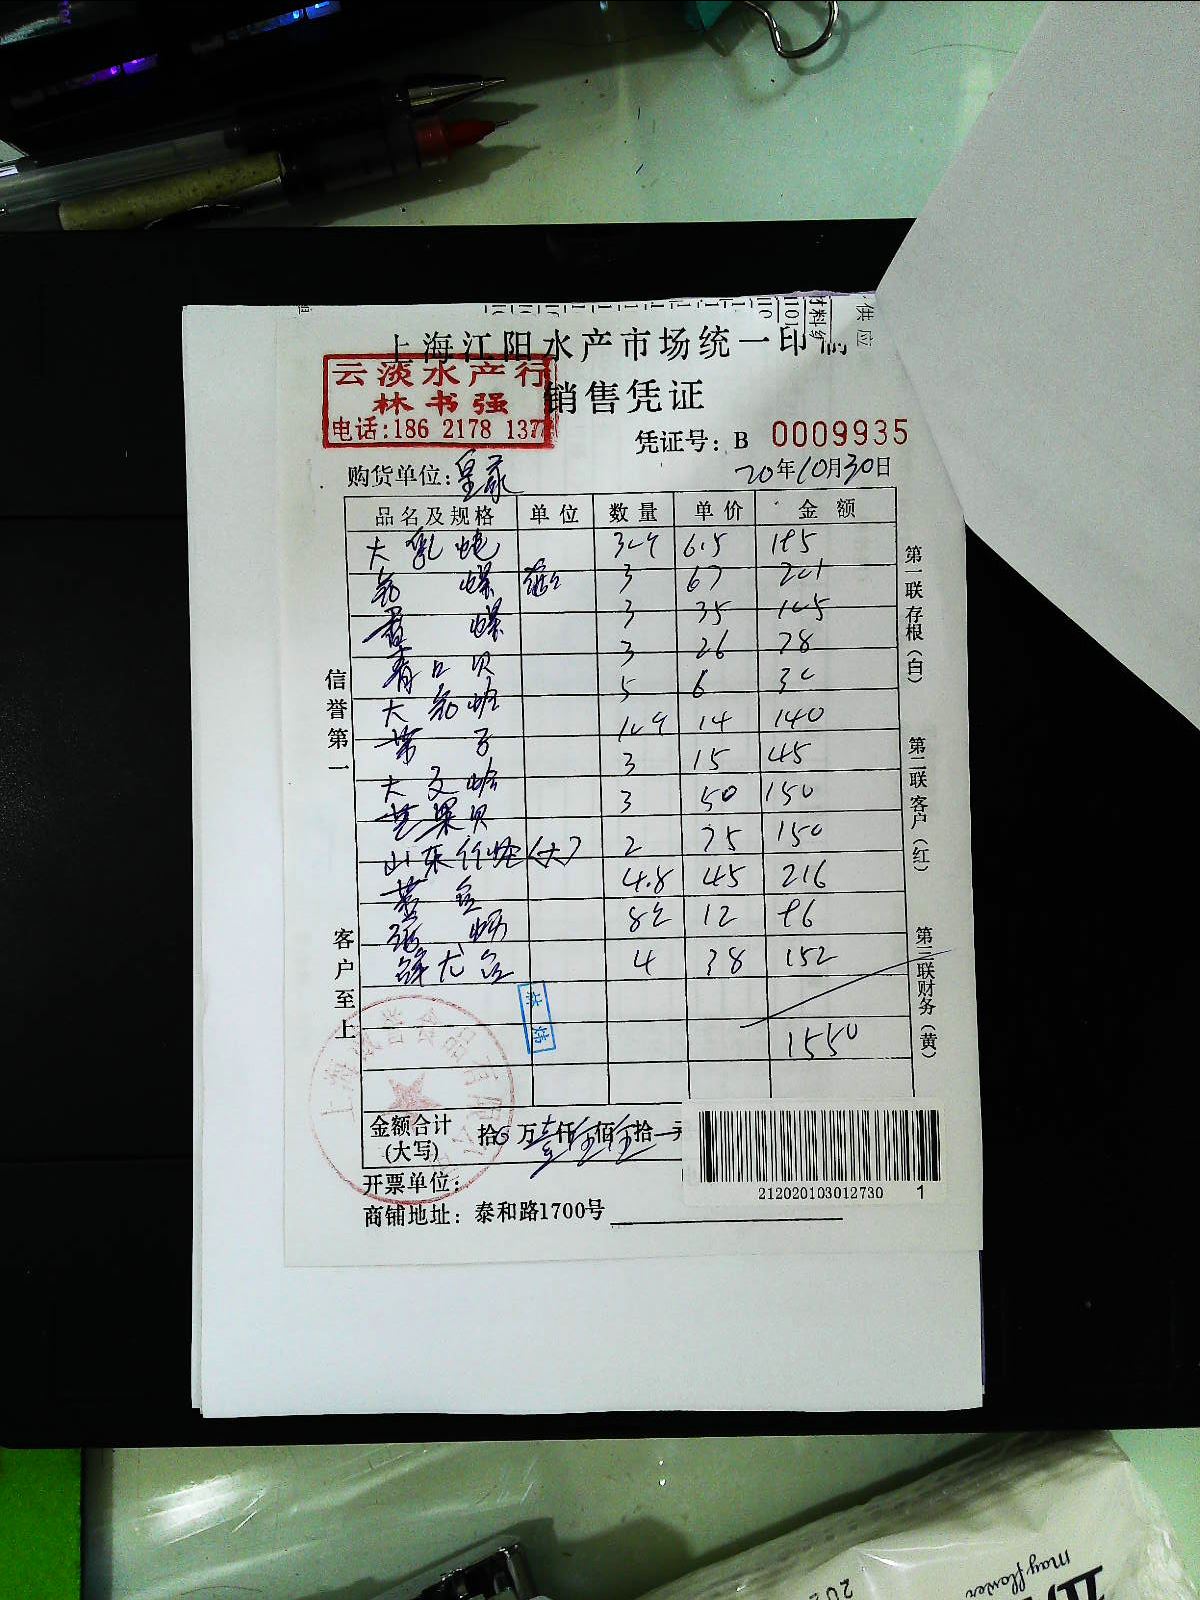 供应
材料
上海江阳水产市场统一印制
云淡水产行
林书强
电话:186 2178 137
销售凭证
凭证号: B 0009935
购货单位:
20年10月30日
品名及规格 单位 数量 单价 金额
大 6.5 195
螺 3 67 201
螺 3 35 105
青口贝 3 26 78
大 5 6 30
14 140
大文蛤 3 15 45
苹果贝 3 50 150
山东竹蛏(大) 2 75 150
4.8 45 216
8 12 96
4 38 152
1550
林 炜
金额合计
(大写)
拾 万壹仟伍佰伍拾 元
开票单位:
商铺地址: 泰和路1700号
212020103012730 1
信誉第一
客户至上
第一联存根(白)
第二联客户(红)
第三联财务(黄)
上海 食品有限公司
mayflower